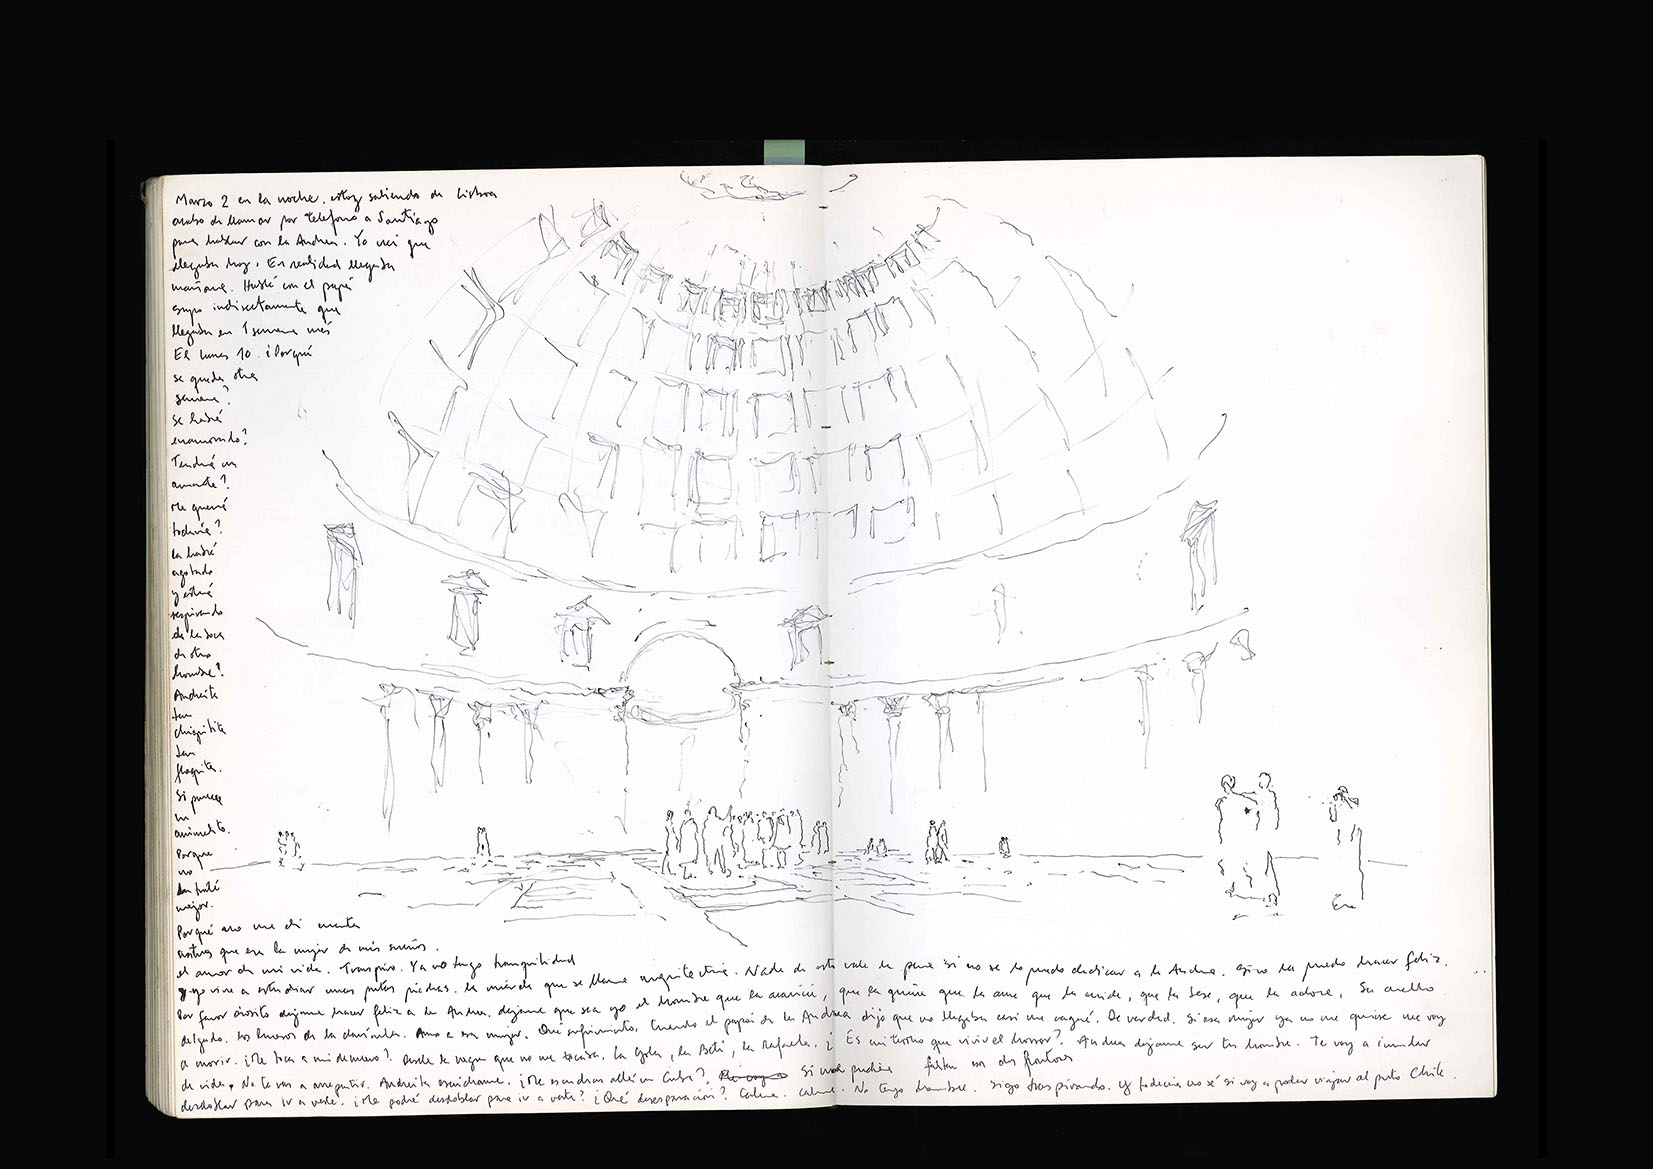 Marzo 2 en la noche. estoy saliendo de Lisboa
acabo de llamar por teléfono a Santiago
para hablar con la Andrea. Yo creí que
llegaba hoy. En realidad llegaba
mañana. Hablé con el papá
supo indirectamente que
llegaba en 1 semana más
El lunes 10. ¿Porqué
se queda otra
semana?
Se habrá
enamorado?
Tendrá un
amante?
Me querrá
todavía?
La habré
agotado
y estará
respirando
de la boca
de otro
hombre?
Andreita
tan
chiquitita
tan
flaquita.
Si parece
un
animalito.
Porque
no
la traté
mejor.
Porqué no me di cuenta
antes que era la mujer de mis sueños.
el amor de mi vida. Transpiro. Ya no tengo tranquilidad
y yo vine a estudiar unas putas piedras. la mierda que se llama arquitectura. Nada de esto vale la pena si no se lo puedo dedicar a la Andrea. si no la puedo hacer feliz.
Por favor diosito déjame hacer feliz a la Andrea, déjame que sea yo el hombre que la acaricie, que la quiera que la ame que la cuide, que la bese, que la adore. Su cuello
delgado. los huesos de la clavícula. Amo a esa mujer. Qué sufrimiento. Cuando el papá de la Andrea dijo que no llegaba casi me cagué. De verdad. Si esa mujer ya no me quiere me voy
a morir. ¿Me toca a mi de nuevo?. Desde la negra que no me tocaba. La Gola, la Beti, la Rafaela. ¿Es mi turno que viví el horror?. Andrea déjame ser tu hombre. Te voy a cambiar
de vida. No te vas a arrepentir. Andreita escúchame. ¿Me escuchas allá en Cuba?. Si me pudiera faltan los dos frontones
desdoblar para ir a verte. ¿Me podré desdoblar para ir a verte? ¿Qué desesperación?. Calma. calma. No tengo hambre. sigo traspirando. y todavía no sé si voy a poder viajar al puto Chile.